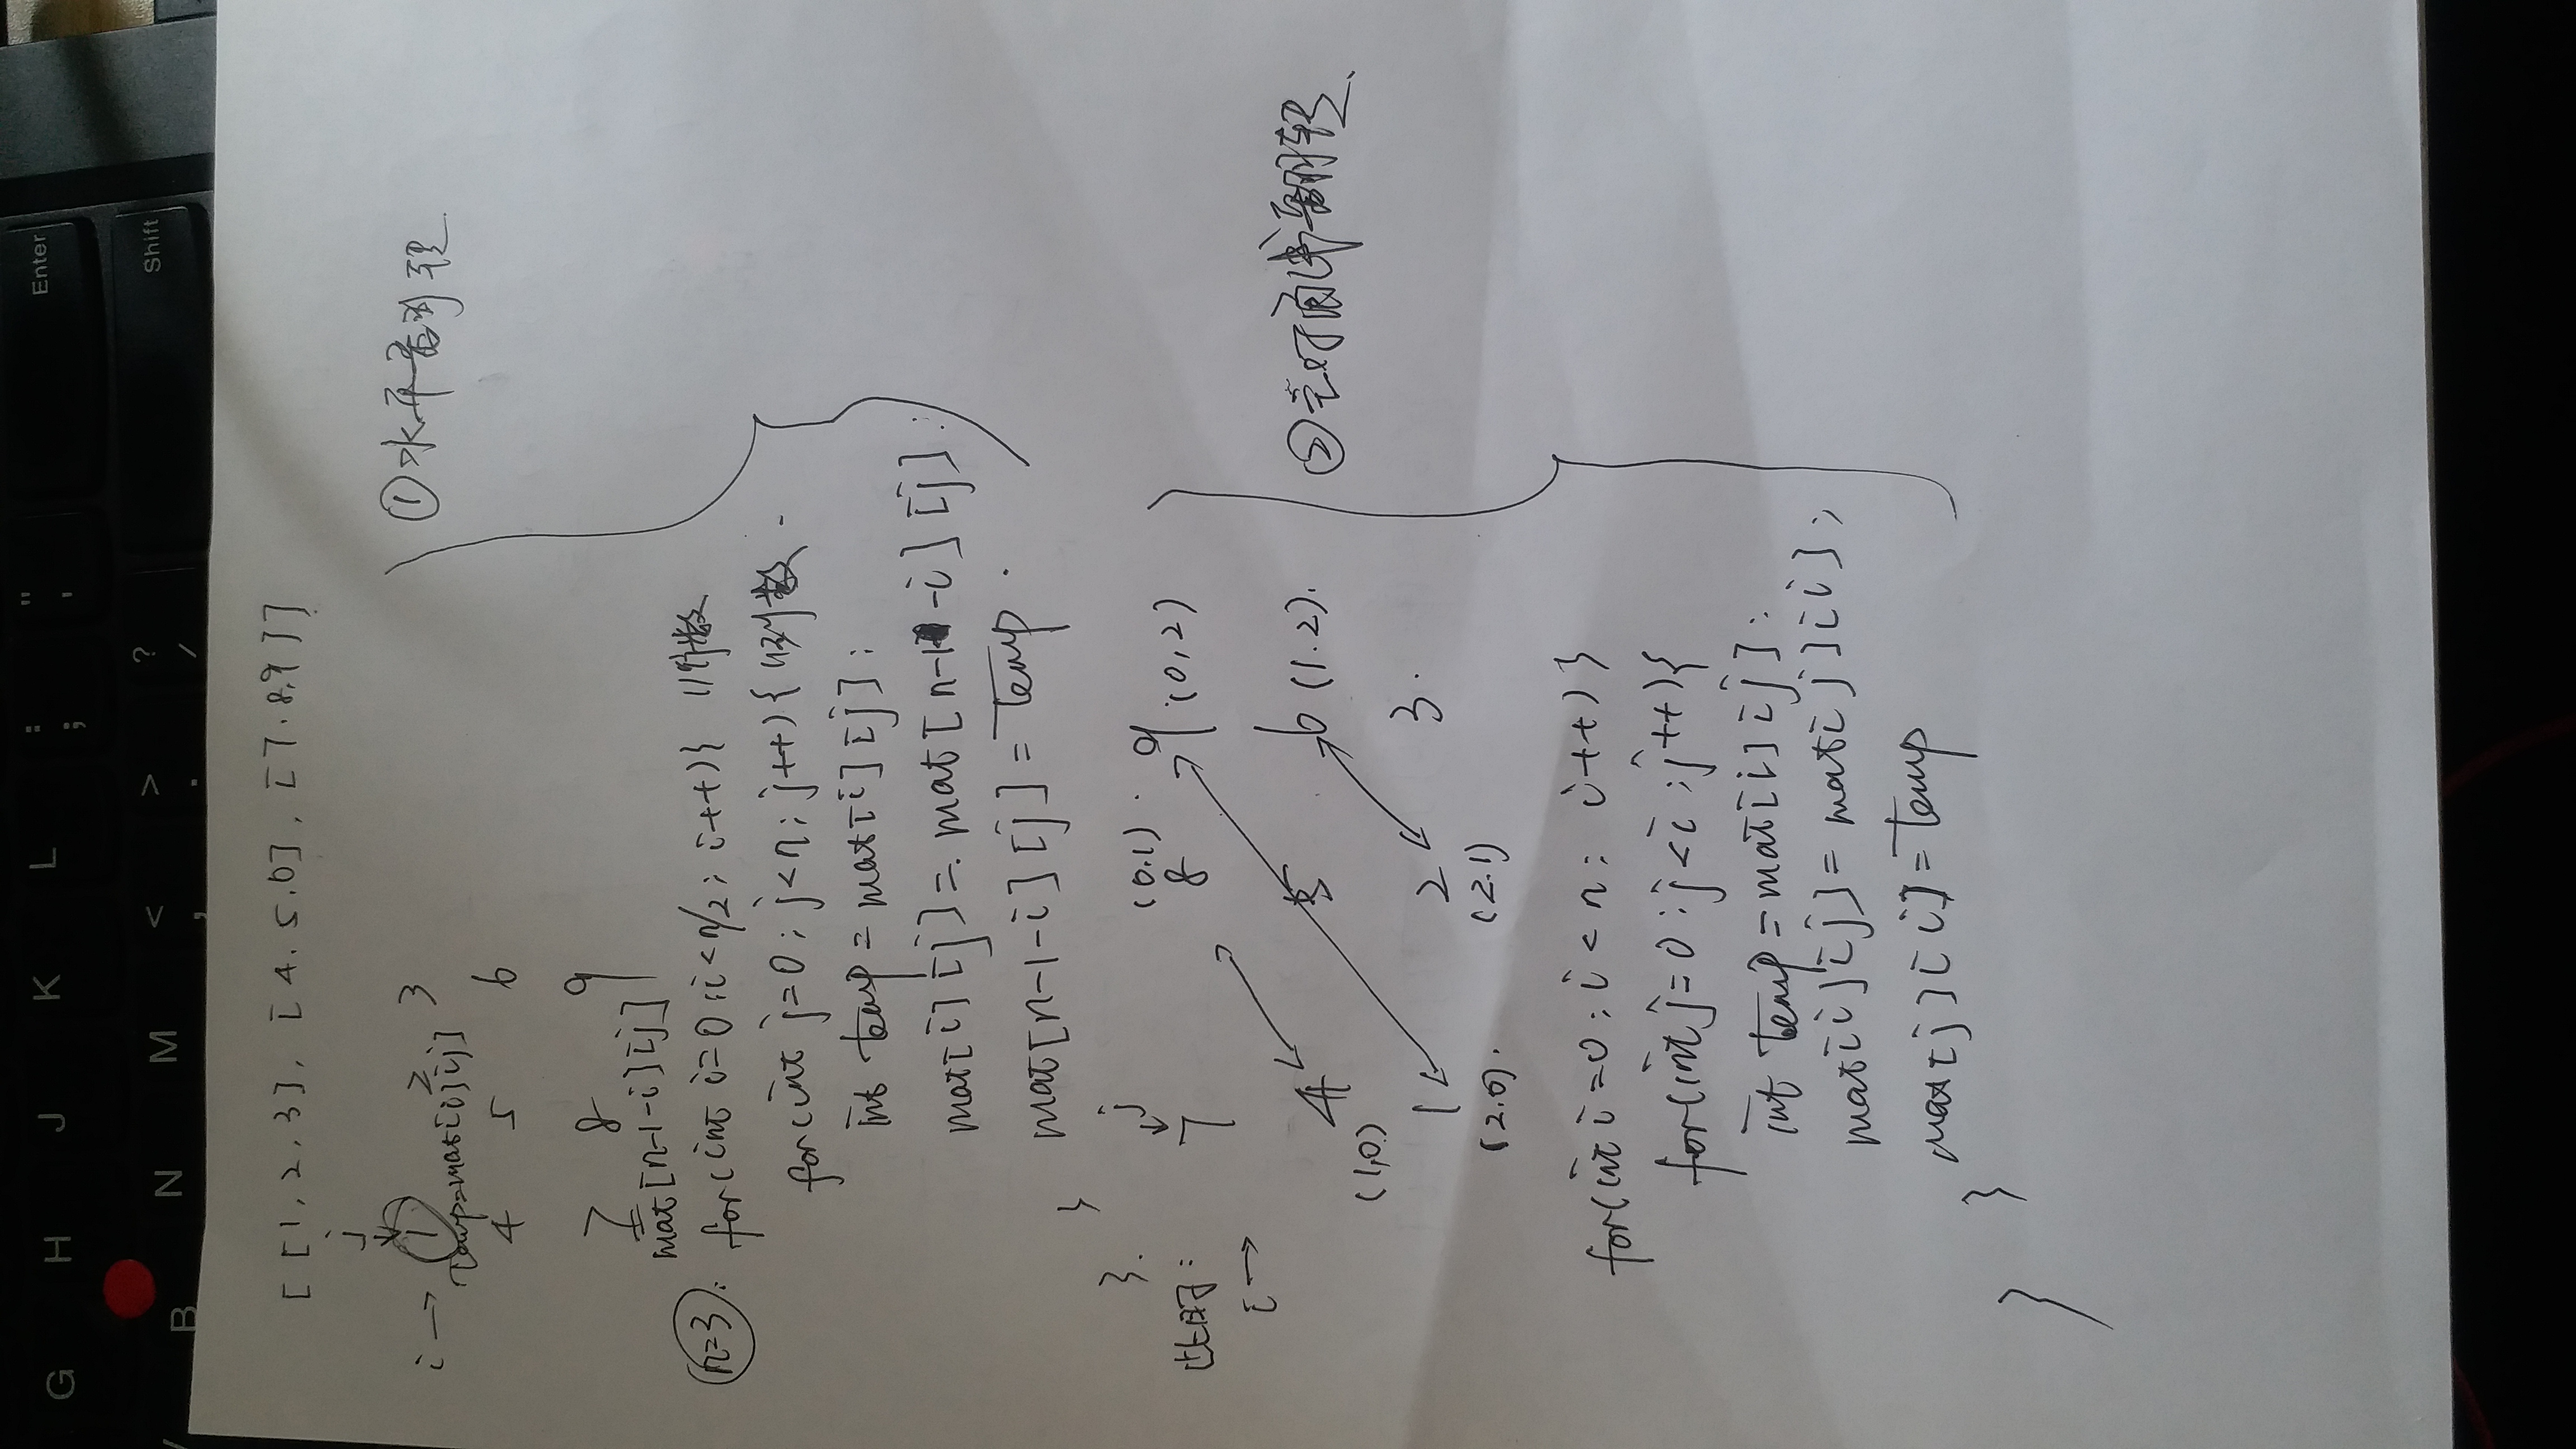 G H J K L : ; " ' Enter
B N M < , > . ? / Shift
[ [1, 2, 3], [4, 5, 6], [7, 8, 9] ]
j
i → 1 2 3
temp=mat[i][j]
4 5 6
7 8 9
mat[n-1-i][j]
① 水平翻转
n=3: for(int i=0; i<n/2; i++){ //行数
for(int j=0; j<n; j++){ //列数
int temp = mat[i][j];
mat[i][j] = mat[n-1-i][j];
mat[n-1-i][j] = temp.
}
}.
j
此时: 7 (0,1) 8 9 (0,2)
i →
4 5 6 (1,2).
(1,0)
1 2 3.
(2,0). (2,1)
② 主对角线翻转
for(int i=0; i<n; i++) }
for(int j=0; j<i; j++){
int temp = mat[i][j];
mat[i][j] = mat[j][i];
mat[j][i] = temp
}
}